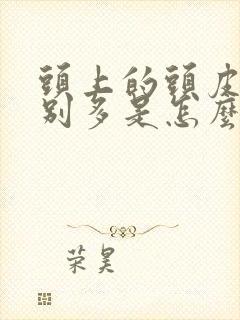 頭上的頭皮
別多是怎麼
荣昊